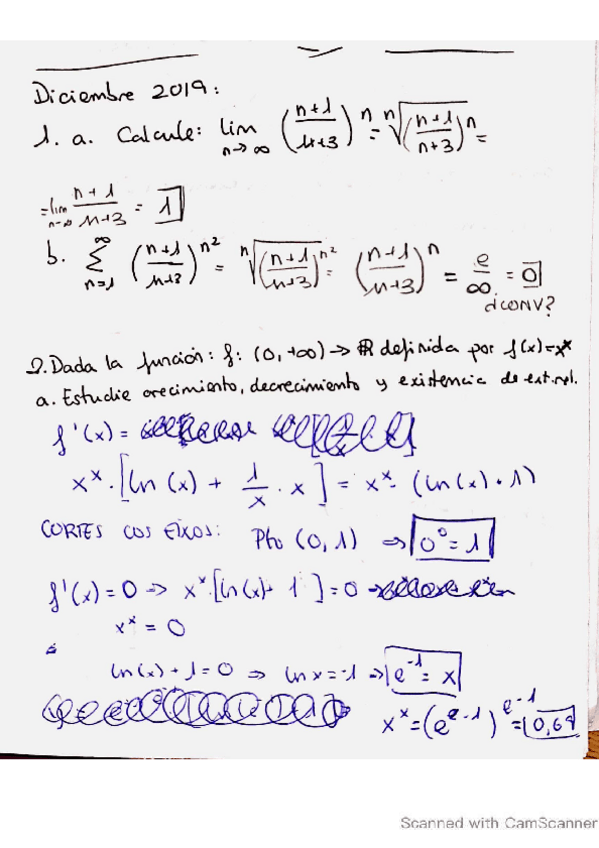 Diciembre 2019:
1. a. Calcule: lim n→∞ ((n+1)/(n+3))^n = ⁿ√((n+1)/(n+3))^n =
= lim n→∞ (n+1)/(n+3) = 1
b. ∞ Σ n=1 ((n+1)/(n+3))^n² = ⁿ√((n+1)/(n+3))^n² = ((n+1)/(n+3))^n = e/∞ = 0
¿CONV?
2. Dada la función: f: (0, +∞) → ℝ definida por f(x)=x^x
a. Estudie crecimiento, decrecimiento y existencia de ext. rel.
f'(x) =
x^x · [ln (x) + 1/x · x] = x^x · (ln(x) + 1)
CORTES COS EIXOS: Pto (0, 1) ⇒ 0^0 = 1
f'(x) = 0 ⇒ x^x [ln(x) + 1] = 0 ⇒
x^x = 0
ln(x) + 1 = 0 ⇒ ln x = -1 ⇒ e^-1 = x
x^x = (e^e-1)^e-1 = 0,69
Scanned with CamScanner